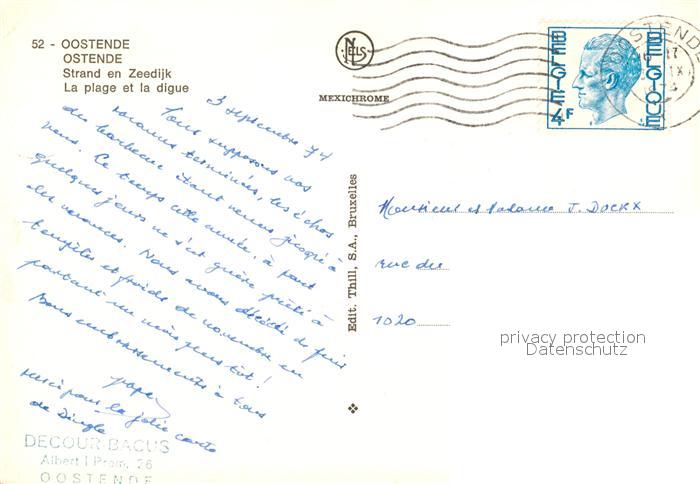 52 - OOSTENDE
OSTENDE
Strand en Zeedijk
La plage et la digue
NELS
MEXICHROME
BELGIE 4F BELGIQUE
OOSTENDE
3 septembre 74
Nous supposons vos
vacances terminées, les échos
du barbecue étant venus jusqu'à
nous. Le temps cette année, à part
quelques jours ne s'est guère prêté à
des vacances. Nous avons décidé de fuir
tempêtes et froids de novembre en
partant un mois plus tôt!
Bons embrassements à tous
papa
merci pour la jolie carte
de Dingle
DECOUR-BACUS
Albert I Prom. 26
OOSTENDE
Edit. Thill, S.A., Bruxelles
Monsieur et Madame J. DOCKX
rue du
1020
privacy protection
Datenschutz